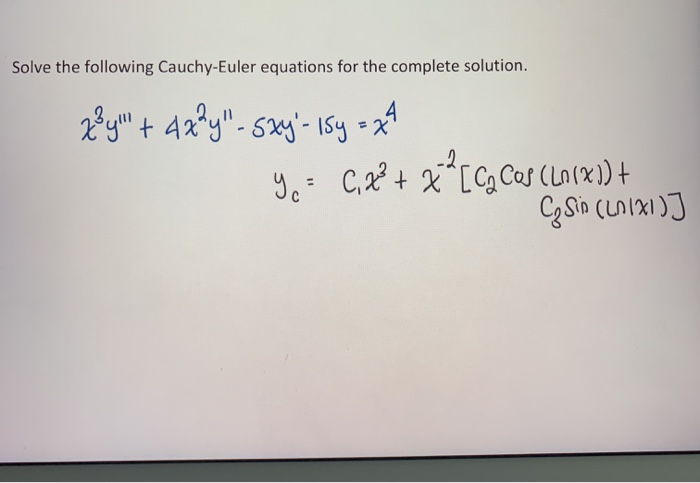 Solve the following Cauchy-Euler equations for the complete solution.
x³y''' + 4x²y'' - 5xy' - 15y = x⁴
y_c = C₁x³ + x⁻² [C₂ Cos (Ln(x)) +
C₃ Sin (Ln|x|)]